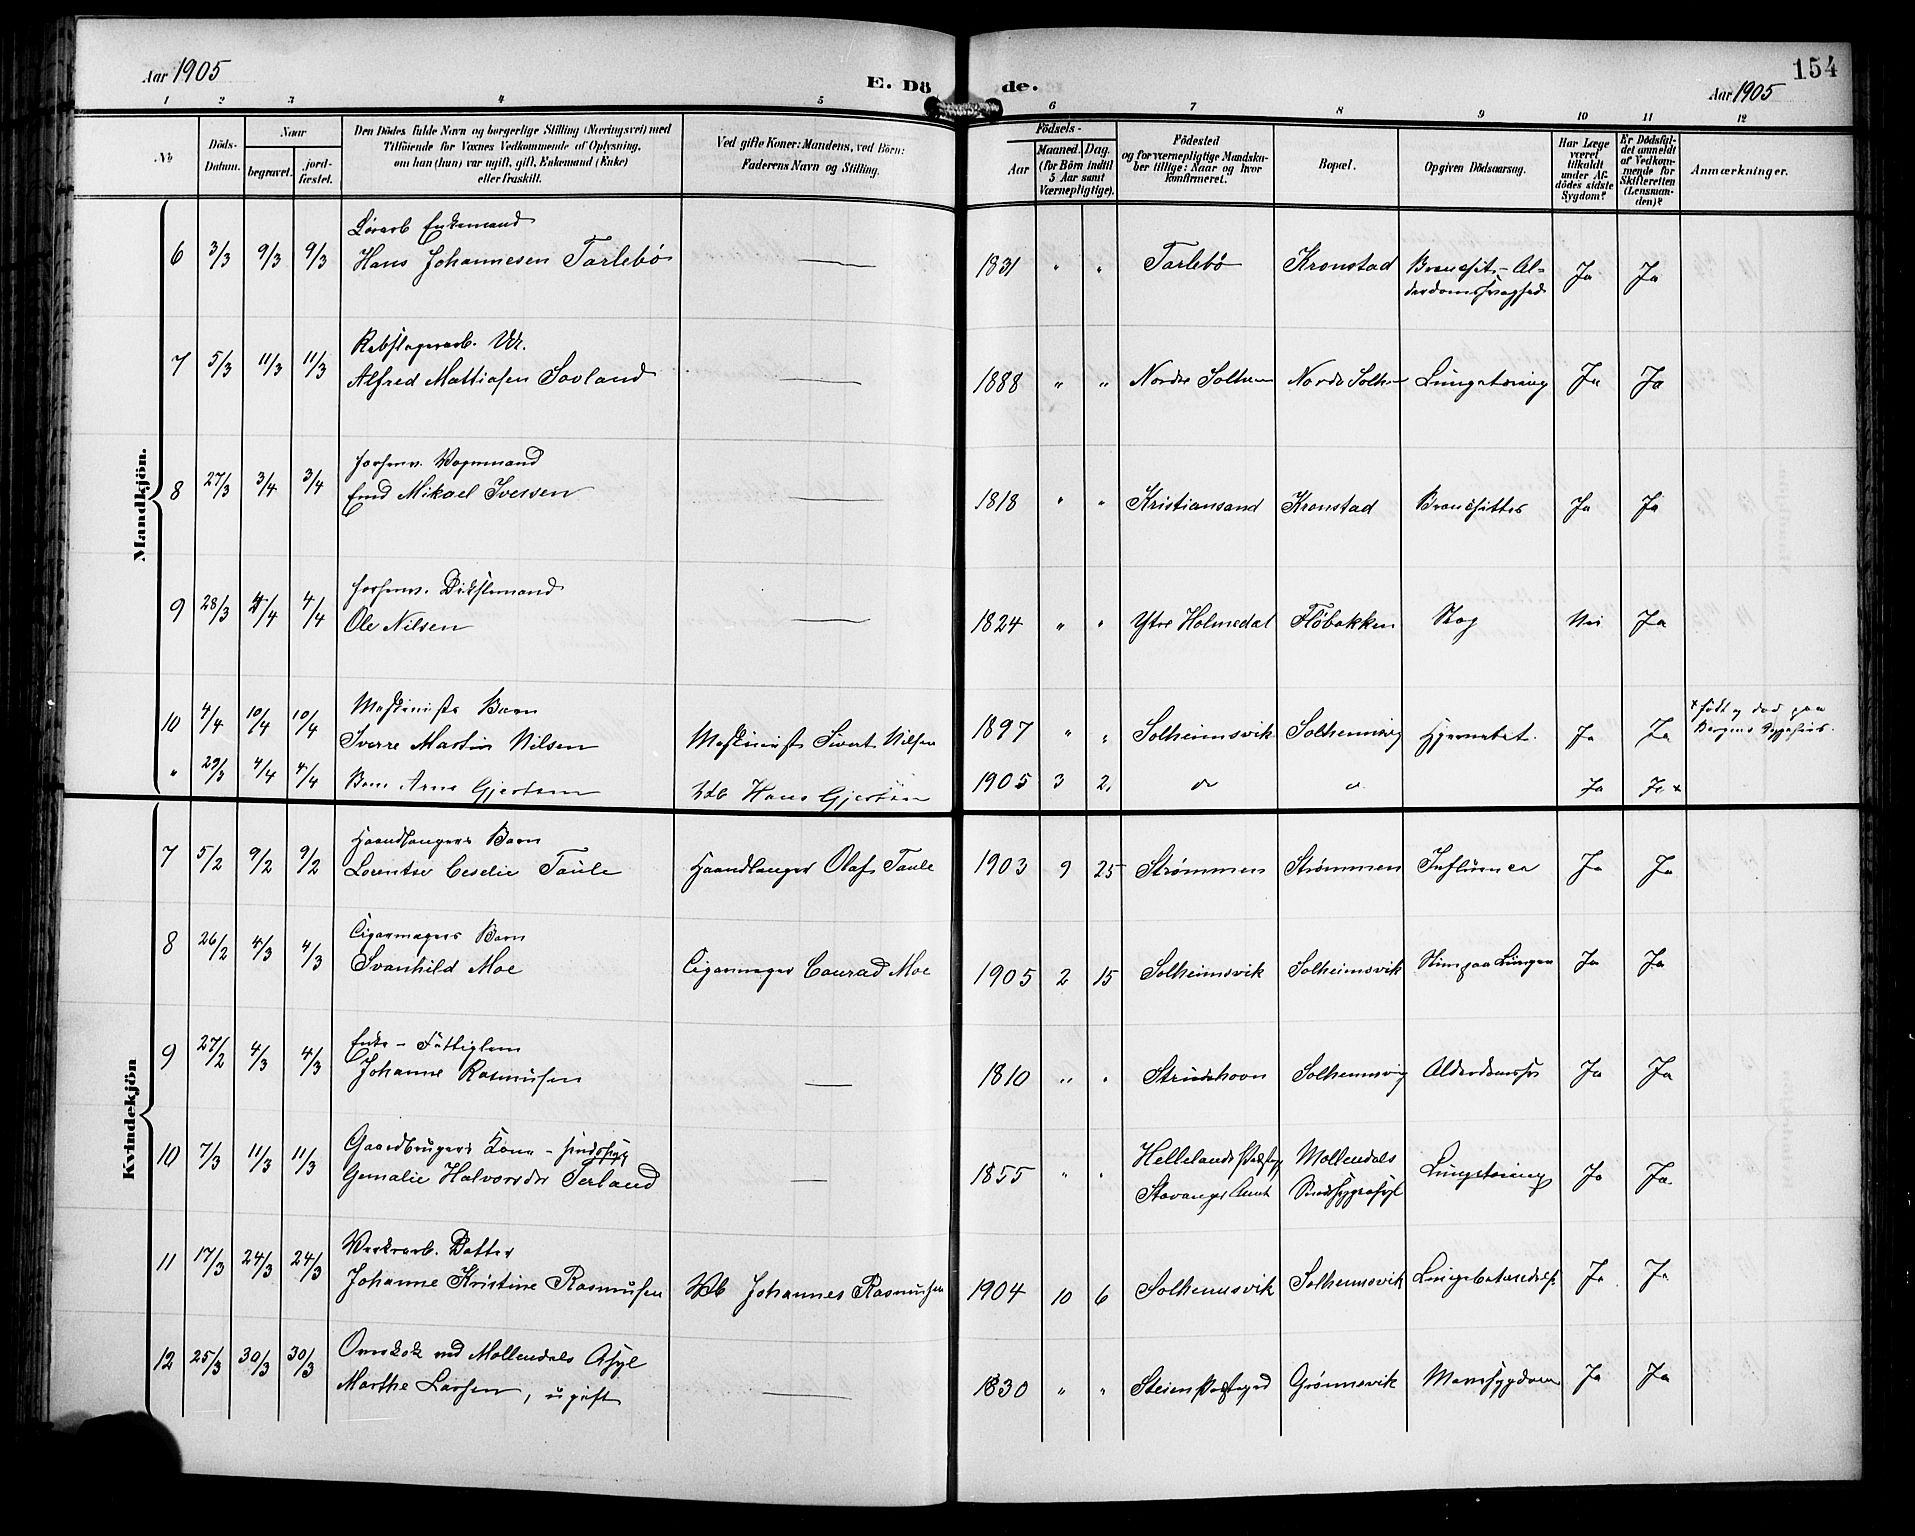 Aar 1905
E. Dö
de.
154
Aar 1905
1 2 3 4 5 6 7 8 9 10 11 12
No
Döds-
Datum.
Naar
begravet.
jord-
fæstet.
Den Dödes fulde Navn og borgerlige Stilling (Næringsvei) med
Tilföiende for Voxnes Vedkommende af Oplysning,
om han (hun) var ugift, gift, Enkemand (Enke)
eller fraskilt.
Ved gifte Koner: Mandens, ved Börn:
Faderens Navn og Stilling.
Födsels-
Aar
Maaned. Dag.
(for Börn indtil
5 Aar samt
Værnepligtige).
Födested
og for værnepligtige Mandska-
ber tillige: Naar og hvor
konfirmeret.
Bopæl.
Opgiven Dödsaarsag.
Har Læge
været
tilkaldt
under Af-
dödes sidste
Sygdom?
Er Dödsfal-
det anmeldt
af Vedkom-
mende for
Skifteretten
(Lensman-
den)?
Anmærkninger.
Mandkjön.
Enkemand
6 3/3 9/3 9/3 Hans Johannesen Tarlebø — 1831 " " Tarlebø Kronstad Ja Ja
7 5/3 11/3 11/3 Alfred Mattiasen Sovland — 1888 " " Nordre Lungetæring Ja Ja
8 27/3 3/4 3/4 Mikael Iversen — 1818 " " Kristiansand Kronstad Ja Ja
9 28/3 4/4 4/4 Ole Nilsen — 1824 " " Ytre Holmedal Fløbakken Nei Ja
Maskinists Barn
10 4/4 10/4 10/4 Sverre Martin Nilsen Maskinist Sivert Nilsen 1897 " " Solheimsvik Solheimsvig Ja Ja
" 29/3 4/4 4/4 Gjertsen Hans Gjertsen 1905 3 2. Ja Ja +
Kvindekjön
Haandlangers Barn
7 5/2 9/2 9/2 Taule Haandlanger Olaf Taule 1903 9 25 Strømmen Strømmen Influenca Ja Ja
Cigarmagers Barn
8 26/2 4/3 4/3 Svanhild Moe Cigarmager Conrad Moe 1905 2 15 Solheimsvik Solheimsvik Ja Ja
Enke - Fattiglem
9 27/2 4/3 4/3 Johanne Rasmusen — 1810 " " Solheimsvig Ja Ja
Gaardbrugers Kone - sindssyg
10 7/3 11/3 11/3 Halvorsdr — 1855 " " Hellelands Møllendals Lungetæring Ja Ja
Stavanger Amt
Datter
11 17/3 24/3 24/3 Johanne Kristine Rasmusen Johannes Rasmusen 1904 10 6 Solheimsvik Solheimsvik Ja Ja
ved Møllendals Asyl
12 25/3 30/3 30/3 Marthe Larsen, ugift — 1830 " " Grønnevik Ja Ja